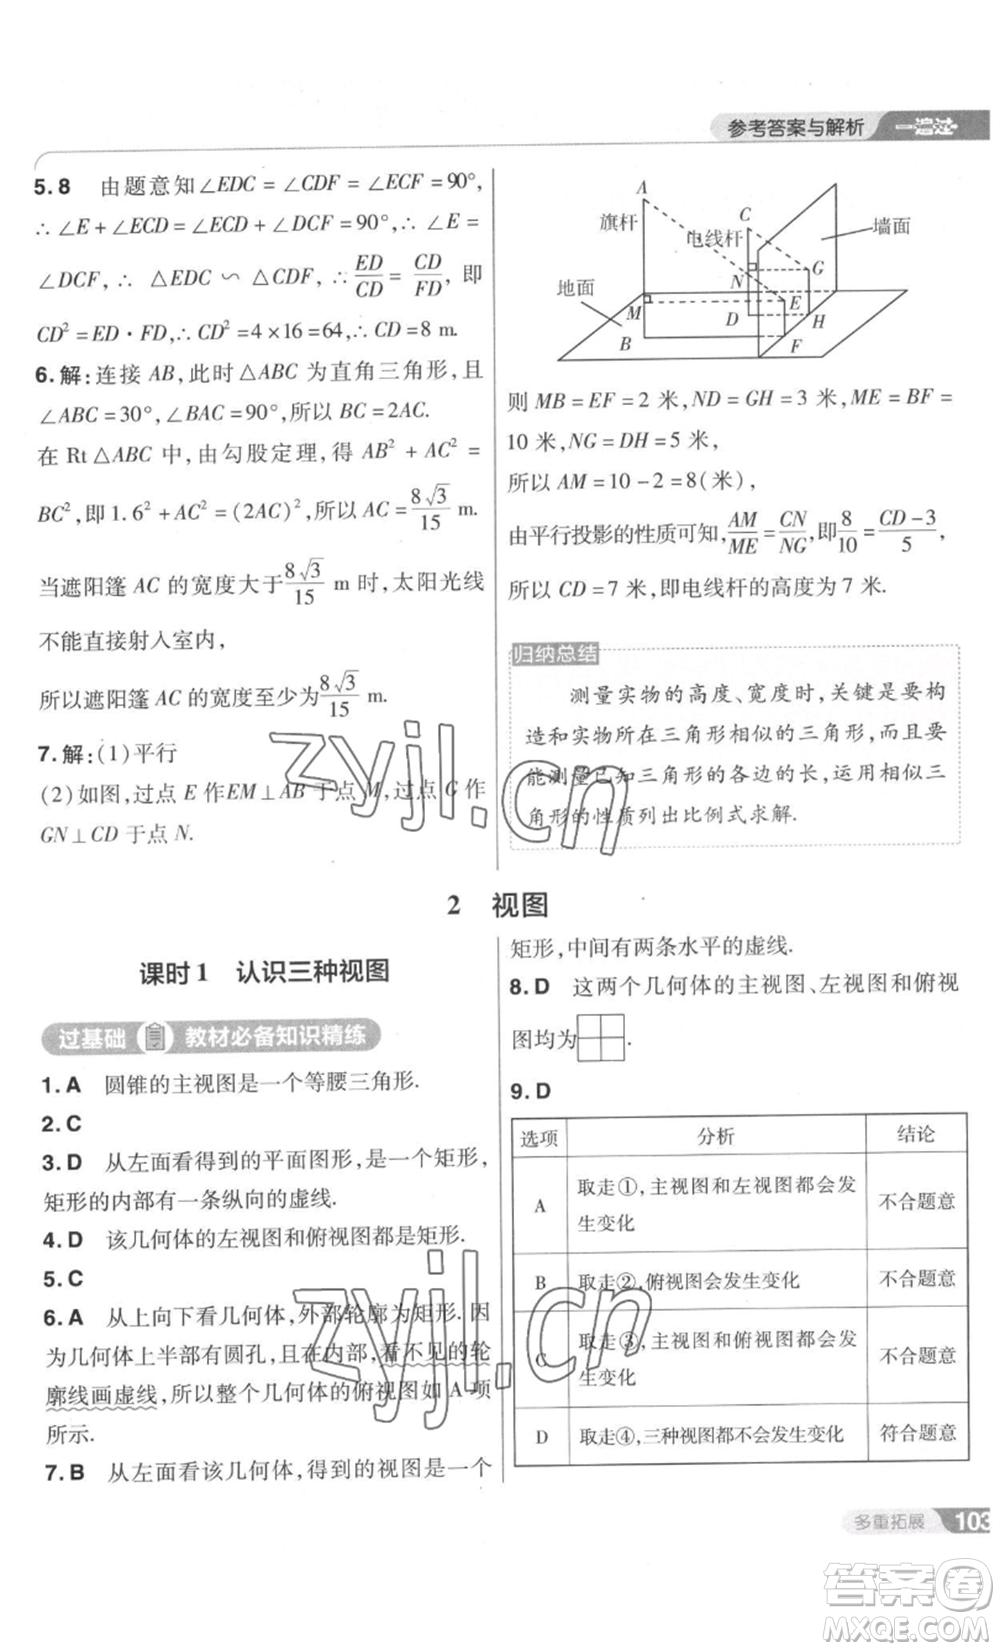 参考答案与解析 一遍过
5.8 由题意知∠EDC=∠CDF=∠ECF=90°,
∴∠E+∠ECD=∠ECD+∠DCF=90°,∴∠E=
∠DCF,∴△EDC∽△CDF,∴ED/CD=CD/FD,即
CD²=ED·FD,∴CD²=4×16=64,∴CD=8 m.
6.解:连接AB,此时△ABC为直角三角形,且
∠ABC=30°,∠BAC=90°,所以BC=2AC.
在Rt△ABC中,由勾股定理,得AB²+AC²=
BC²,即1.6²+AC²=(2AC)²,所以AC=8√3/15 m.
当遮阳篷AC的宽度大于8√3/15 m时,太阳光线
不能直接射入室内,
所以遮阳篷AC的宽度至少为8√3/15 m.
7.解:(1)平行
(2)如图,过点E作EM⊥AB于点M,过点G作
GN⊥CD于点N.
A
C
旗杆
电线杆
墙面
G
N
地面
M
E
D
H
B
F
则MB=EF=2米,ND=GH=3米,ME=BF=
10米,NG=DH=5米,
所以AM=10-2=8(米),
由平行投影的性质可知,AM/ME=CN/NG,即8/10=(CD-3)/5,
所以CD=7米,即电线杆的高度为7米.
归纳总结
测量实物的高度、宽度时,关键是要构
造和实物所在三角形相似的三角形,而且要
能测量已知三角形的各边的长,运用相似三
角形的性质列出比例式求解.
2 视图
课时1 认识三种视图
过基础 教材必备知识精练
1.A 圆锥的主视图是一个等腰三角形.
2.C
3.D 从左面看得到的平面图形,是一个矩形,
矩形的内部有一条纵向的虚线.
4.D 该几何体的左视图和俯视图都是矩形.
5.C
6.A 从上向下看几何体,外部轮廓为矩形.因
为几何体上半部有圆孔,且在内部,看不见的轮
廓线画虚线,所以整个几何体的俯视图如A项
所示.
7.B 从左面看该几何体,得到的视图是一个
矩形,中间有两条水平的虚线.
8.D 这两个几何体的主视图、左视图和俯视
图均为 .
9.D
选项 分析 结论
A 取走①,主视图和左视图都会发
生变化 不合题意
B 取走②,俯视图会发生变化 不合题意
C 取走③,主视图和俯视图都会发
生变化 不合题意
D 取走④,三种视图都不会发生变化 符合题意
多重拓展 103
zyjl.cn
zyjl.cn
答案卷
MXQE.COM